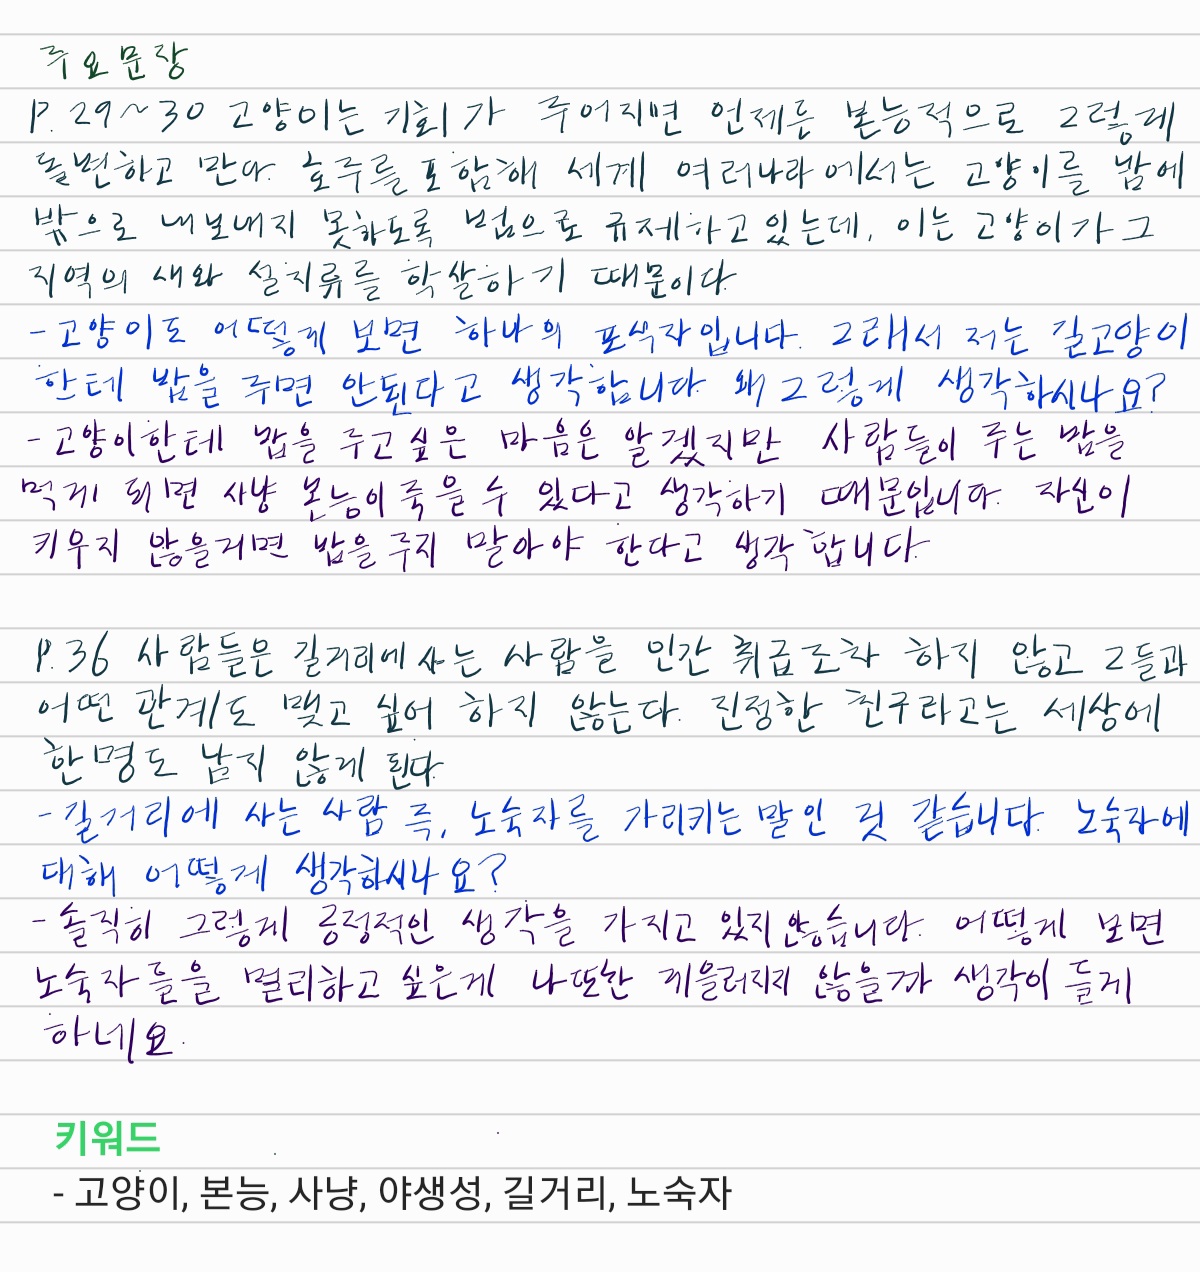 주요문장
P. 29~30 고양이는 기회가 주어지면 언제든 본능적으로 그렇게
돌변하고 만다. 호주를 포함해 세계 여러나라에서는 고양이를 밤에
밖으로 내보내지 못하도록 법으로 규제하고 있는데, 이는 고양이가 그
지역의 새와 설치류를 학살하기 때문이다
- 고양이도 어떻게 보면 하나의 포식자입니다. 그래서 저는 길고양이
한테 밥을 주면 안된다고 생각합니다 왜 그렇게 생각하시나요?
- 고양이한테 밥을 주고싶은 마음은 알겠지만 사람들이 주는 밥을
먹게 되면 사냥 본능이 죽을 수 있다고 생각하기 때문입니다. 자신이
키우지 않을거면 밥을 주지 말아야 한다고 생각 합니다.
P. 36 사람들은 길거리에 사는 사람을 인간 취급조차 하지 않고 그들과
어떤 관계도 맺고 싶어 하지 않는다. 진정한 친구라고는 세상에
한 명도 남지 않게 된다.
- 길거리에 사는 사람 즉, 노숙자를 가리키는 말인 것 같습니다. 노숙자에
대해 어떻게 생각하시나요?
- 솔직히 그렇게 긍정적인 생각을 가지고 있지 않습니다. 어떻게 보면
노숙자들을 멀리하고 싶은게 나또한 게을러지지 않을까 생각이 들게
하네요.
키워드
- 고양이, 본능, 사냥, 야생성, 길거리, 노숙자